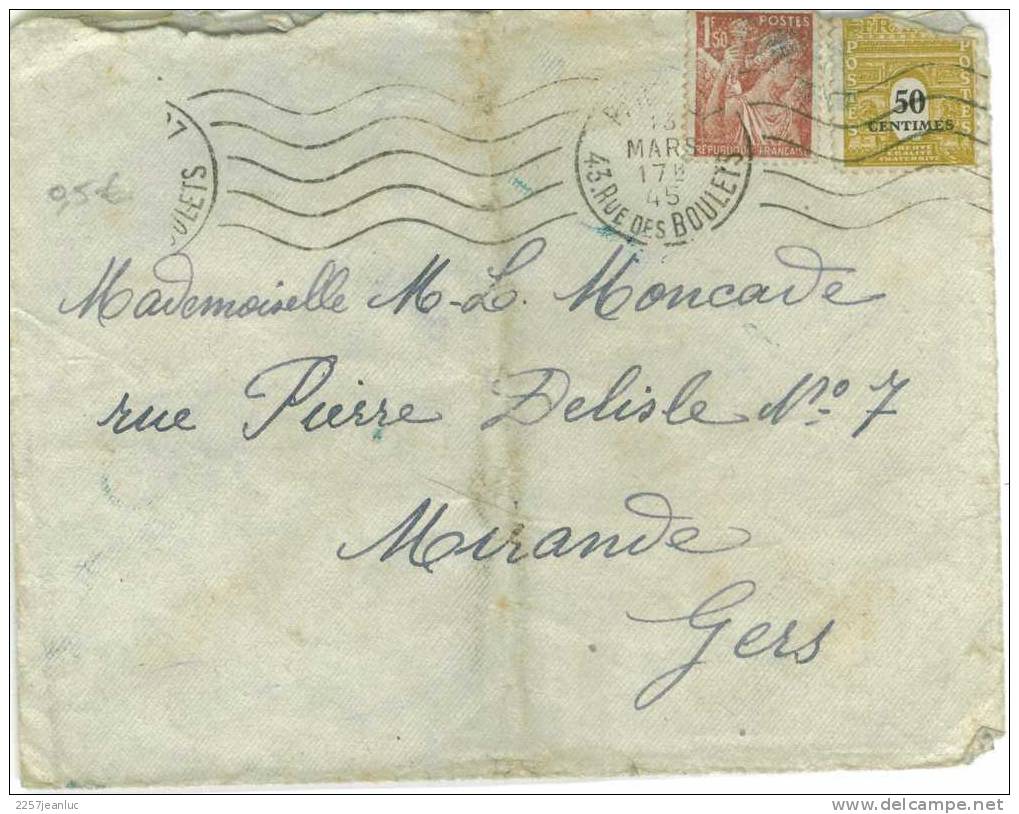 1F50 POSTES
RÉPUBLIQUE FRANÇAISE
POSTES
POSTES
50
CENTIMES
LIBERTÉ
ÉGALITÉ
FRATERNITÉ
13
MARS
17H
45
43.RUE DES BOULETS
BOULETS
95€
Mademoiselle M-L. Moncade
rue Pierre Delisle No 7
Mirande
Gers
2257jeanluc
www.delcampe.net